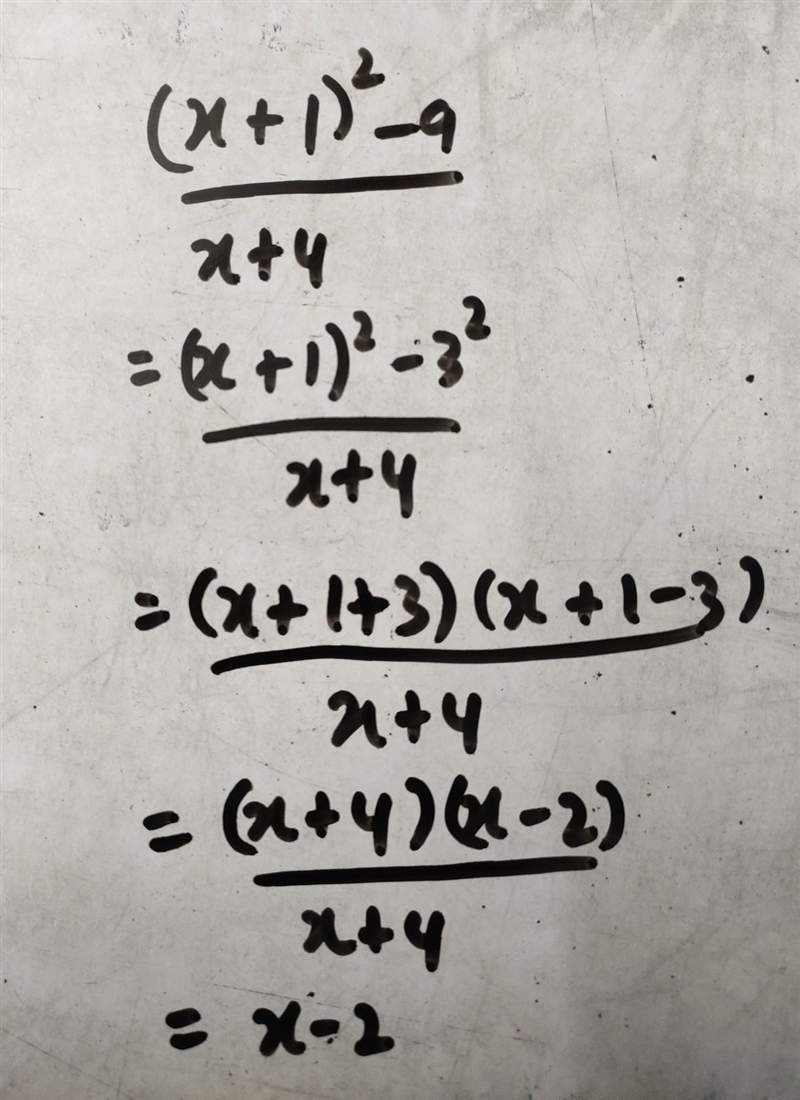 (x+1)²-9
x+4
=(x+1)²-3²
x+4
=(x+1+3)(x+1-3)
x+4
=(x+4)(x-2)
x+4
= x-2